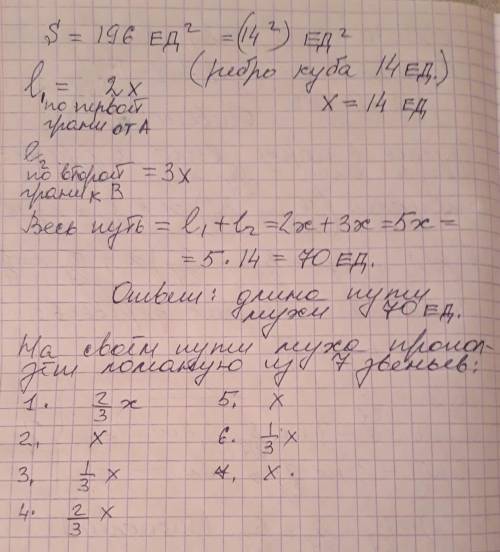 S = 196 ЕД² = (14²) ЕД²
(ребро куба 14 ед.)
l₁ = 2x
по первой
грани от А
x = 14 ЕД
l₂
по второй = 3x
грани к В
Весь путь = l₁ + l₂ = 2x + 3x = 5x =
= 5 · 14 = 70 ЕД.
Ответ: длина пути
мухи 70 ЕД.
На своём пути муха пропол-
зёт ломаную из 7 звеньев:
1. 2/3 x
2, x
3, 1/3 x
4. 2/3 x
5. x
6. 1/3 x
7. x.